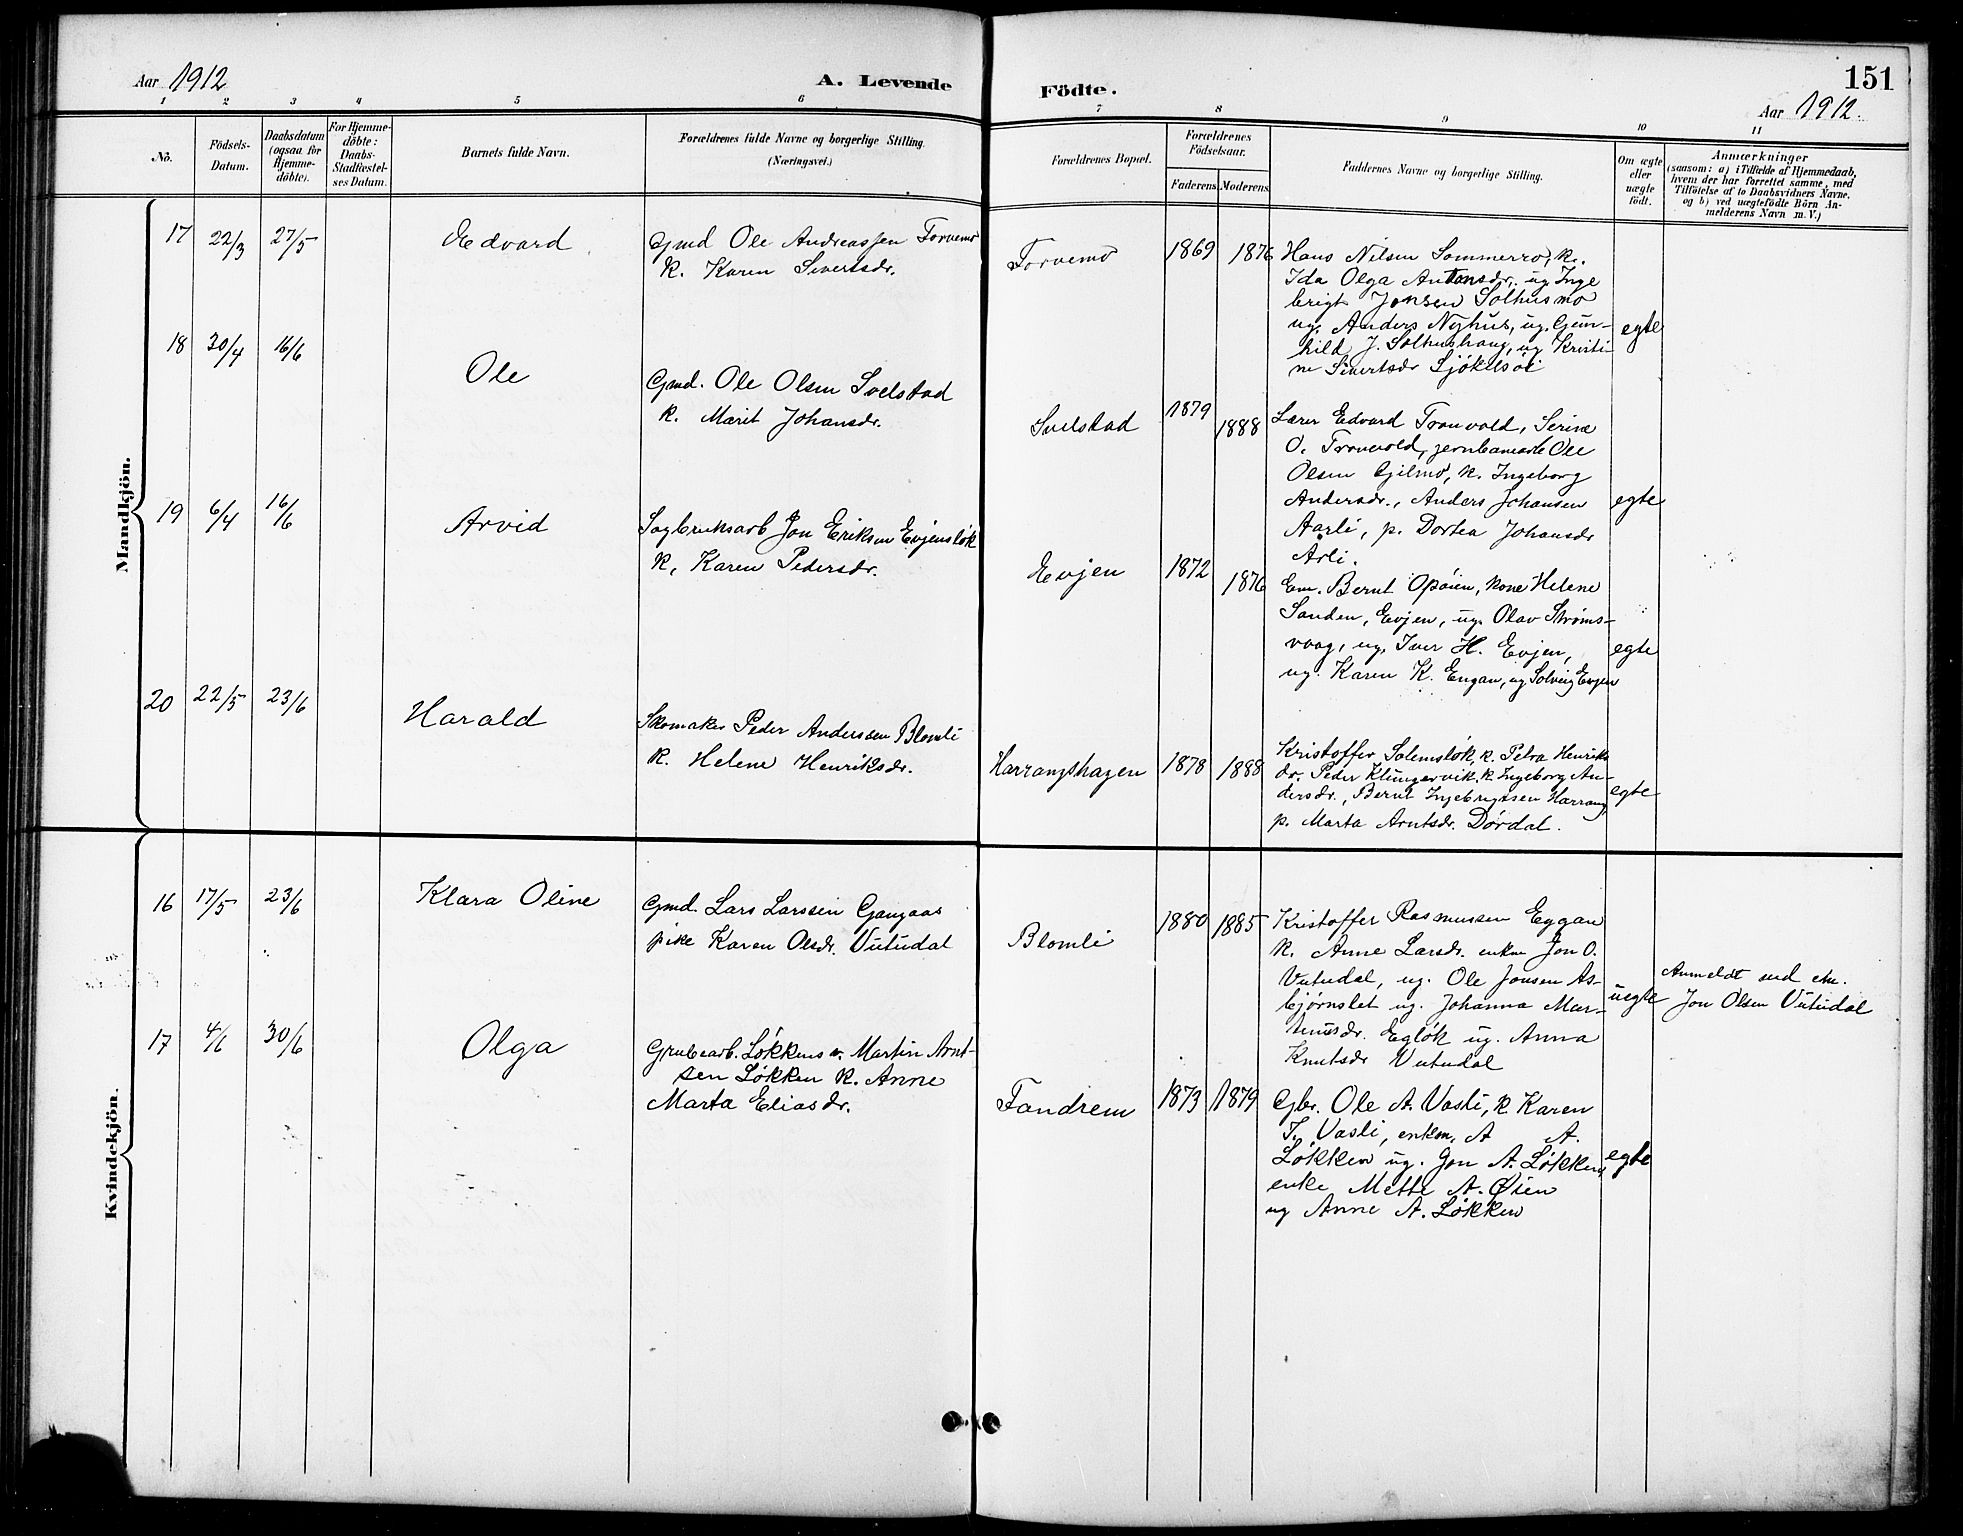 Aar 1912 A. Levende Födte. 151
Aar 1912.
1 2 3 4 5 6 7 8 9 10 11
No.
Födsels-
Datum.
Daabsdatum
(ogsaa for
Hjemme-
döbte).
For Hjemme-
döbte:
Daabs-
Stadfæstel-
ses Datum.
Barnets fulde Navn.
Forældrenes fulde Navne og borgerlige Stilling.
(Næringsvei.)
Forældrenes Bopæl.
Forældrenes
Födselsaar.
Faderens Moderens
Faddernes Navne og borgerlige Stilling.
Om ægte
eller
uægte
födt.
Anmærkninger
(saasom: a) i Tilfælde af Hjemmedaab,
hvem der har forrettet samme, med
Tilföielse af to Daabsvidners Navne,
og b) ved uægtefödte Börn An-
melderens Navn m. V.)
Mandkjön.
17 22/3 27/5 Edvard
Gmd Ole Andreassen Torvemo
k. Karen Sivertsdr.
Torvemo 1869 1876
Hans Nilsen Sommerro, k.
Ida Olga Antonsdr. ug. Inge
brigt Jonsen Solhusmo
ug. Anders Nyhus, ug. Gun-
hild J. Solhushaug, ug Kristi-
ne Sivertsdr
egte
18 30/4 16/6 Ole
Gmd. Ole Olsen Svelstad
k. Marit Johansdr.
Svelstad 1879 1888
Lærer Edvard Tronvold, Serine
O. Tronvold, jernbanearb Ole
Olsen Gjilmo, k. Ingeborg
Andersdr., Anders Johansen
Aarli, p. Dortea Johansdr
Arli.
egte
19 6/4 16/6 Arvid
Sagbruksarb Jon Eriksen Evjensløk
k. Karen Pedersdr.
Evjen 1872 1876
Em. Bernt Opøien, kone Helene
Sanden, Evjen, ug. Olav Strøms-
vaag, ug. Iver H. Evjen,
ug. Karen K. Engan, ug Solveig Evjen
egte
20 22/5 23/6 Harald
Skomaker Peder Anderssen Blomli
k. Helene Henriksdr.
Harrangshagen 1878 1888
Kristoffer Solemsløk, k. Petra Henriks
dr. Peder Klungervik, k. Ingeborg An-
dersdr., Bernt Ingebrigtsen Harrang,
p. Marta Arntsdr. Dørdal.
egte
Kvindekjön.
16 17/5 23/6 Klara Oline
Gmd. Lars Larssen Gangaas
pike Karen Olsdr. Vutudal
Blomli 1880 1885
Kristoffer Rasmussen Eggan
k. Anne Larsdr. enkm Jon O.
Vutudal, ug. Ole Jonsen As-
bjørnslet ug. Johanna Mar-
tinusdr. Egløk ug. Anna
Knutsdr Vutudal
uegte
Anmeldt ved em.
Jon Olsen Vutudal
17 4/6 30/6 Olga
Grubearb. Løkkens v. Martin Arnt-
sen Løkken k. Anne
Marta Eliasdr.
Fandrem 1873 1879
Gbr. Ole A. Vasli, k Karen
T. Vasli, enkm. A A.
Løkken ug. Jon A. Løkken,
enke Mette A. Øien
ug Anne A. Løkken
egte